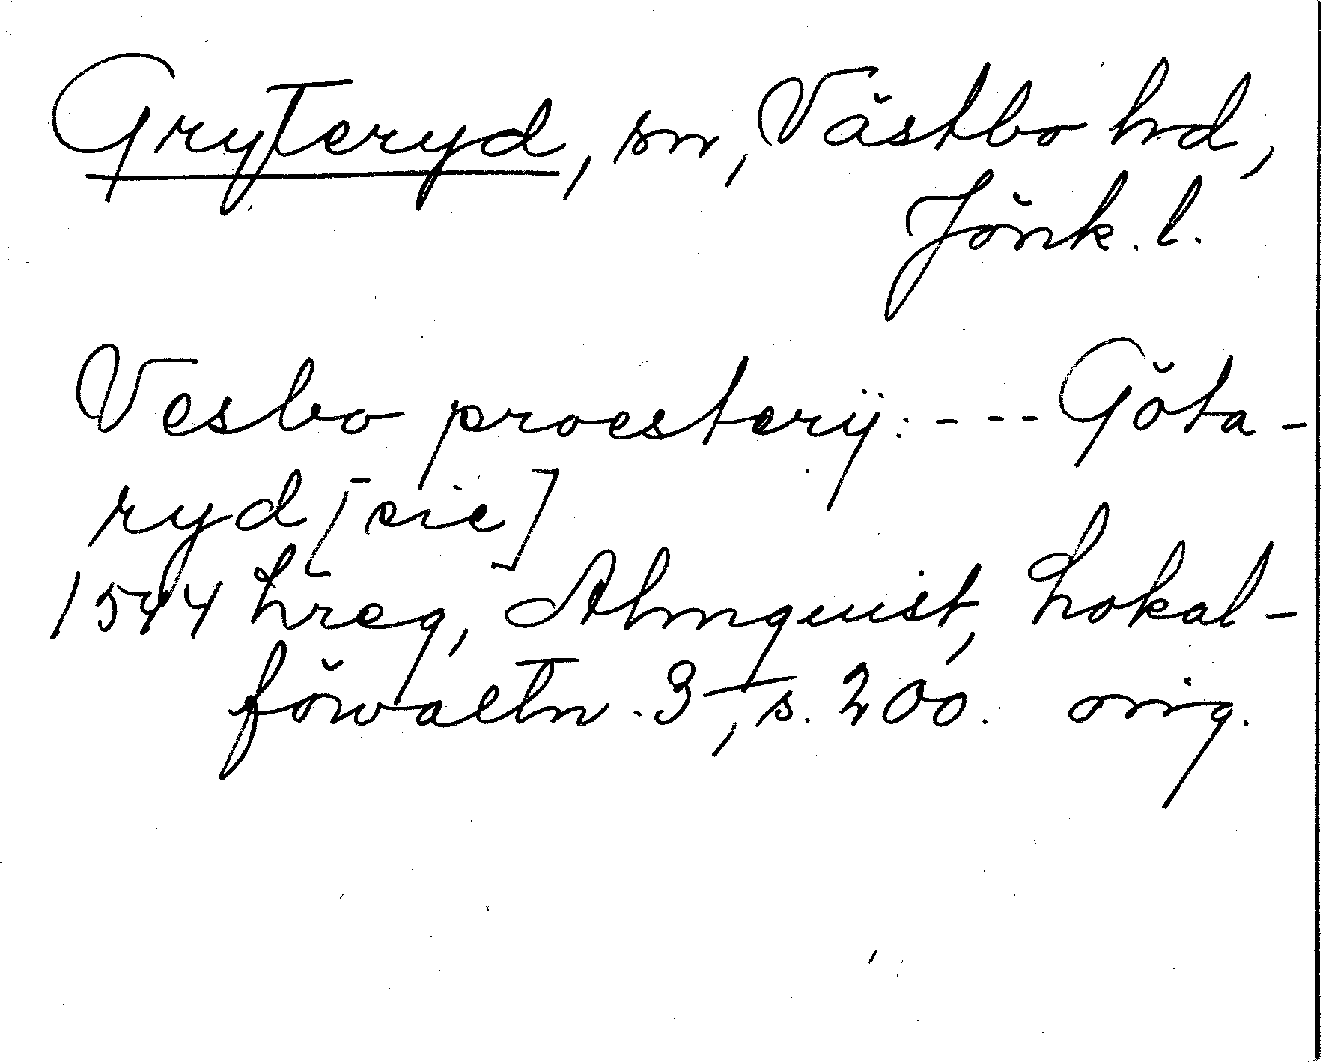 Gryteryd, sn, Västbo hd,
Jönk. l.
Vesbo proesterij: --- Göta-
ryd [sic]
1544 Lreg, Almquist, Lokal-
förvaltn. 3, s. 200. orig.